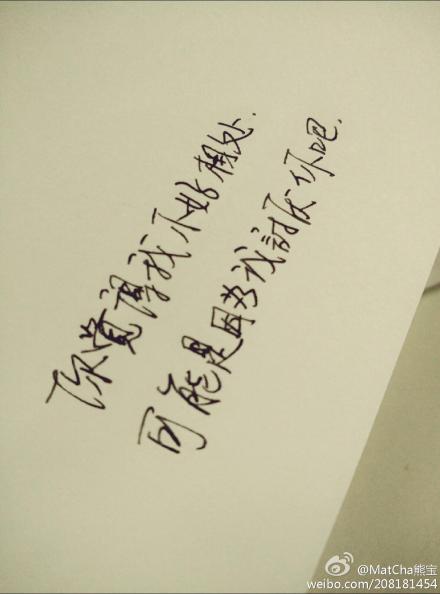 你觉得我不好相处.
可能是因为我讨厌你吧.
@MatCha熊宝
weibo.com/208181454